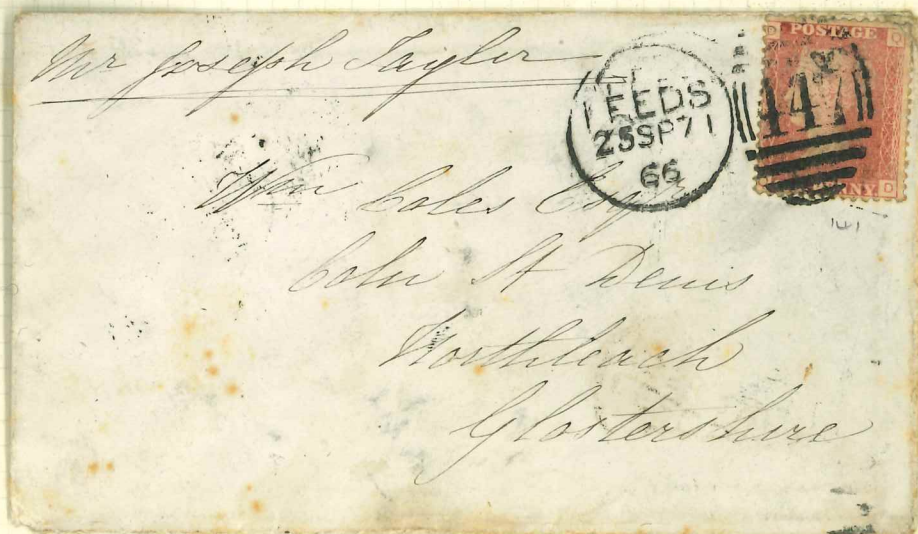 Mr Joseph Taylor
LEEDS
25SP71
66
POSTAGE
447
D
Wm Coles Esqr
Coln St Denis
Northleach
Glostershire